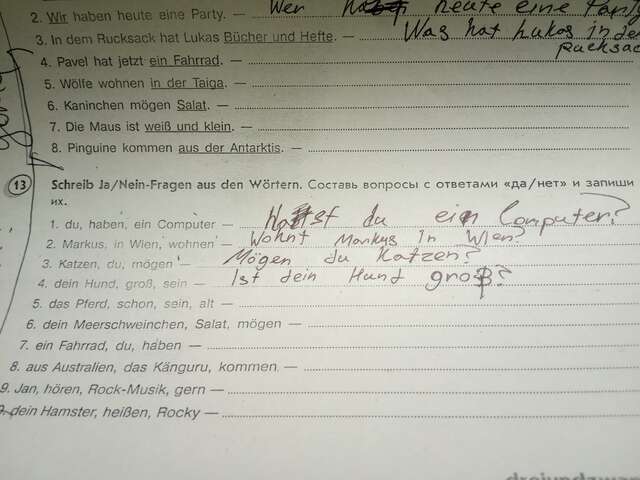 2. Wir haben heute eine Party. — Wer heute eine Party
3. In dem Rucksack hat Lukas Bücher und Hefte. — Was hat Lukas in dem
Rucksac
4. Pavel hat jetzt ein Fahrrad. —
5. Wölfe wohnen in der Taiga. —
6. Kaninchen mögen Salat. —
7. Die Maus ist weiß und klein. —
8. Pinguine kommen aus der Antarktis. —
13 Schreib Ja/Nein-Fragen aus den Wörtern. Составь вопросы с ответами «да/нет» и запиши
их.
1. du, haben, ein Computer — Hast du ein Computer?
2. Markus, in Wien, wohnen — Wohnt Markus in Wien?
3. Katzen, du, mögen — Mögen du Katzen?
4. dein Hund, groß, sein — Ist dein Hund groß?
5. das Pferd, schon, sein, alt —
6. dein Meerschweinchen, Salat, mögen —
7. ein Fahrrad, du, haben —
8. aus Australien, das Känguru, kommen —
9. Jan, hören, Rock-Musik, gern —
dein Hamster, heißen, Rocky —